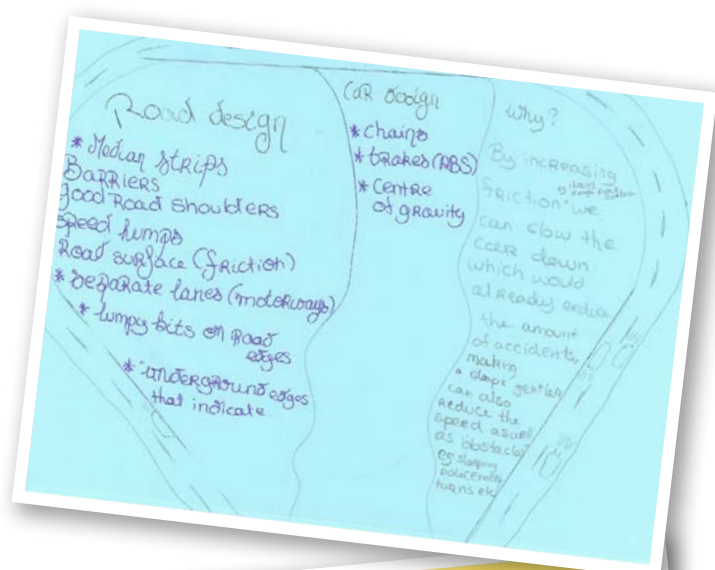 Road design
* Median strips
Barriers
good Road shoulders
speed humps
Road surface (friction)
* separate lanes (moterways)
* lumpy bits on Road
edges
* underground edges
that indicate
Car design
* chains
* brakes (ABS)
* Centre
of gravity
Why?
By increasing
friction we
can slow the
car down
which would
already
the amount
of accidents,
making
a slope gentler
can also
reduce the
speed aswell
as obstacles
eg sleeping
policemen,
turns etc